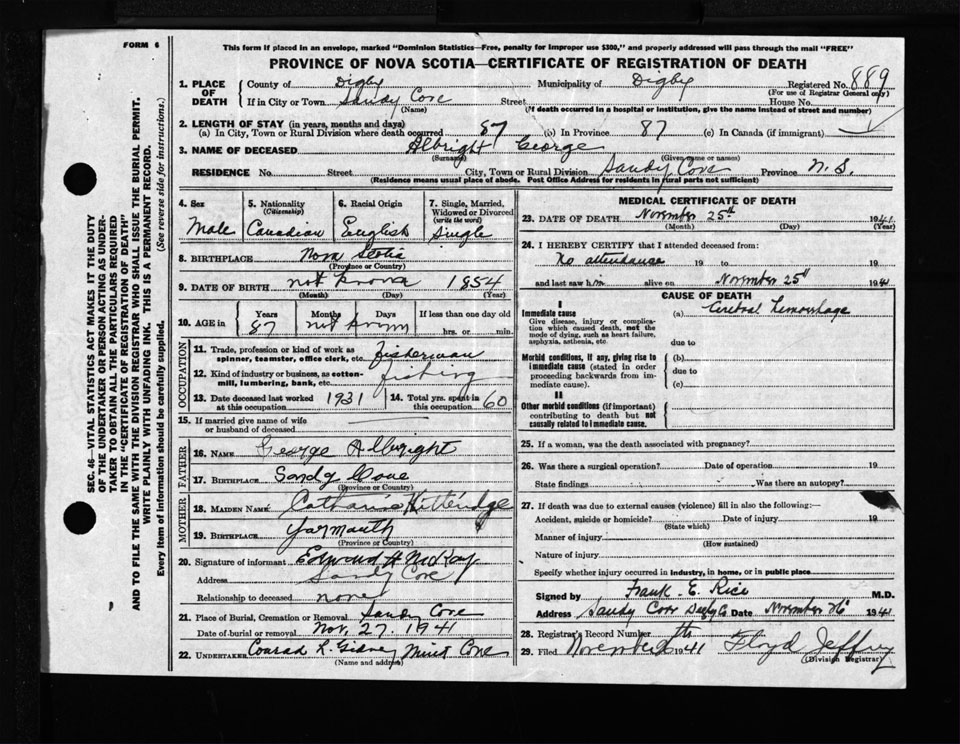 FORM 6
This form if placed in an envelope, marked "Dominion Statistics—Free, penalty for improper use $300," and properly addressed will pass through the mail "FREE"
PROVINCE OF NOVA SCOTIA—CERTIFICATE OF REGISTRATION OF DEATH
SEC. 46—VITAL STATISTICS ACT MAKES IT THE DUTY
OF THE UNDERTAKER OR PERSON ACTING AS UNDER-
TAKER TO OBTAIN ALL THE PARTICULARS REQUIRED
IN THE "CERTIFICATE OF REGISTRATION OF DEATH"
AND TO FILE THE SAME WITH THE DIVISION REGISTRAR WHO SHALL ISSUE THE BURIAL PERMIT.
WRITE PLAINLY WITH UNFADING INK. THIS IS A PERMANENT RECORD.
Every item of information should be carefully supplied. (See reverse side for instructions.)
1. PLACE OF DEATH County of Digby Municipality of Digby Registered No. 889
(For use of Registrar General only)
If in City or Town Sandy Cove Street House No.
(Name) (If death occurred in a hospital or institution, give the name instead of street and number)
2. LENGTH OF STAY (in years, months and days)
(a) In City, Town or Rural Division where death occurred 87 (b) In Province 87 (c) In Canada (if immigrant)
3. NAME OF DECEASED Albright George
(Surname) (Given name or names)
RESIDENCE No. Street City, Town or Rural Division Sandy Cove Province N.S.
(Residence means usual place of abode. Post Office Address for residents in rural parts not sufficient)
4. Sex Male
5. Nationality (Citizenship) Canadian
6. Racial Origin English
7. Single, Married, Widowed or Divorced (write the word) Single
8. BIRTHPLACE Nova Scotia
(Province or Country)
9. DATE OF BIRTH not known 1854
(Month) (Day) (Year)
10. AGE in Years Months Days If less than one day old
87 not known hrs. or min.
OCCUPATION
11. Trade, profession or kind of work as spinner, teamster, office clerk, etc. fisherman
12. Kind of industry or business, as cotton-mill, lumbering, bank, etc. fishing
13. Date deceased last worked at this occupation 1931 14. Total yrs. spent in this occupation 60
15. If married give name of wife or husband of deceased
FATHER
16. NAME George Albright
17. BIRTHPLACE Sandy Cove
(Province or Country)
MOTHER
18. MAIDEN NAME
19. BIRTHPLACE Yarmouth
(Province or Country)
20. Signature of informant Edmond H McKay
Address Sandy Cove
Relationship to deceased none
21. Place of Burial, Cremation or Removal Sandy Cove
Date of burial or removal Nov. 27. 1941
22. UNDERTAKER Conrad L. Gidney Mink Cove
(Name and address)
MEDICAL CERTIFICATE OF DEATH
23. DATE OF DEATH November 25th 1941
(Month) (Day) (Year)
24. I HEREBY CERTIFY that I attended deceased from:
No attendance 19 to 19
and last saw him alive on November 25th 1941
CAUSE OF DEATH
I
Immediate cause
Give disease, injury or complication which caused death, not the mode of dying, such as heart failure, asphyxia, asthenia, etc.
(a) Cerebral Hemorrhage
due to
Morbid conditions, if any, giving rise to immediate cause (stated in order proceeding backwards from immediate cause).
(b)
due to
(c)
II
Other morbid conditions (if important) contributing to death but not causally related to immediate cause.
25. If a woman, was the death associated with pregnancy?
26. Was there a surgical operation? Date of operation 19
State findings Was there an autopsy?
27. If death was due to external causes (violence) fill in also the following:—
Accident, suicide or homicide? Date of injury 19
(State which)
Manner of injury
(How sustained)
Nature of injury
Specify whether injury occurred in industry, in home, or in public place
Signed by Frank. E. Rice M.D.
Address Sandy Cove Digby Co Date November 26 1941
28. Registrar's Record Number
29. Filed November 1941 Floyd Jeffrey
(Division Registrar)